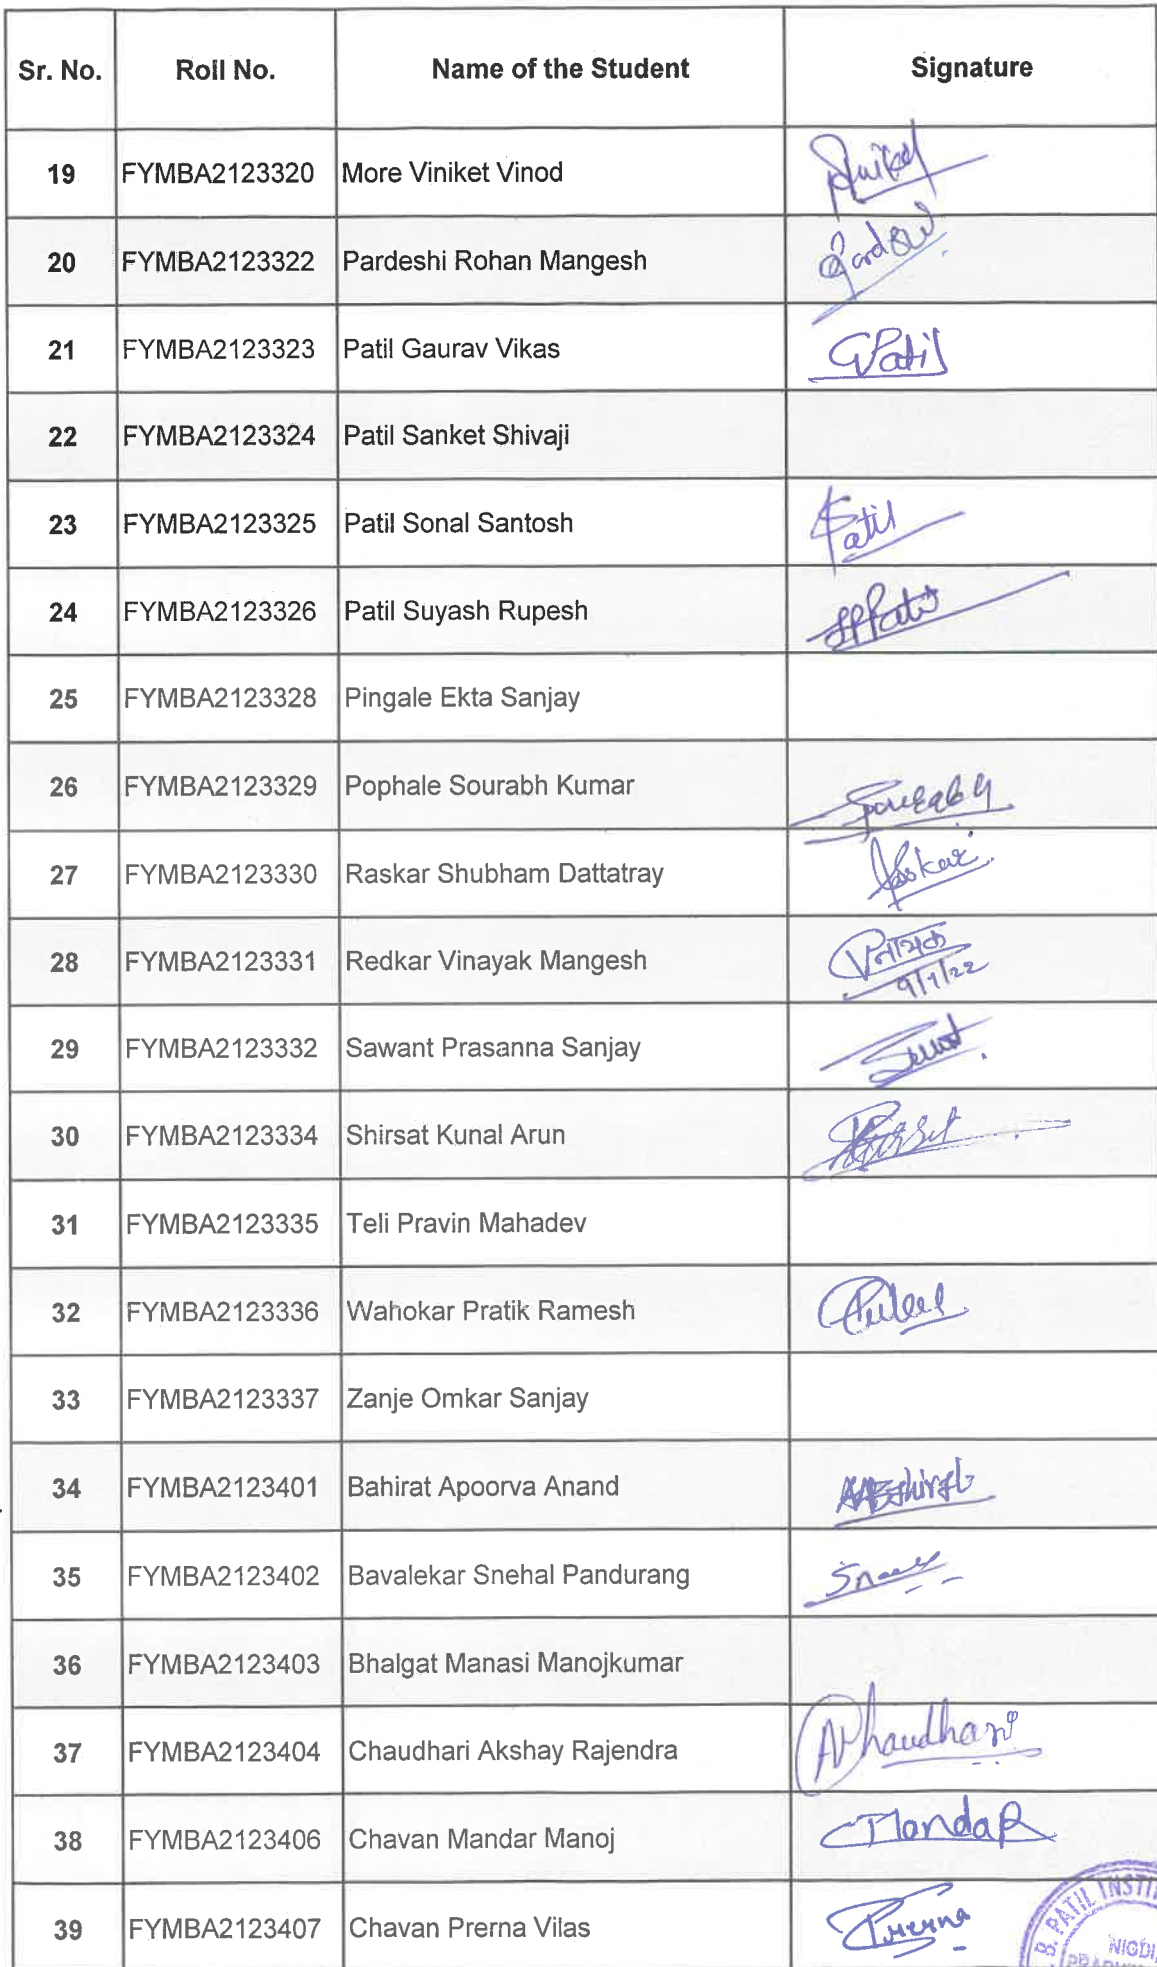 Sr. No. Roll No. Name of the Student Signature
19 FYMBA2123320 More Viniket Vinod
20 FYMBA2123322 Pardeshi Rohan Mangesh
21 FYMBA2123323 Patil Gaurav Vikas GPatil
22 FYMBA2123324 Patil Sanket Shivaji
23 FYMBA2123325 Patil Sonal Santosh SPatil
24 FYMBA2123326 Patil Suyash Rupesh
25 FYMBA2123328 Pingale Ekta Sanjay
26 FYMBA2123329 Pophale Sourabh Kumar Sourabh
27 FYMBA2123330 Raskar Shubham Dattatray Raskar
28 FYMBA2123331 Redkar Vinayak Mangesh
9/1/22
29 FYMBA2123332 Sawant Prasanna Sanjay
30 FYMBA2123334 Shirsat Kunal Arun
31 FYMBA2123335 Teli Pravin Mahadev
32 FYMBA2123336 Wahokar Pratik Ramesh
33 FYMBA2123337 Zanje Omkar Sanjay
34 FYMBA2123401 Bahirat Apoorva Anand
35 FYMBA2123402 Bavalekar Snehal Pandurang
36 FYMBA2123403 Bhalgat Manasi Manojkumar
37 FYMBA2123404 Chaudhari Akshay Rajendra AChaudhari
38 FYMBA2123406 Chavan Mandar Manoj Mandar
39 FYMBA2123407 Chavan Prerna Vilas Prerna
B. PATIL INSTI
NIGDI,